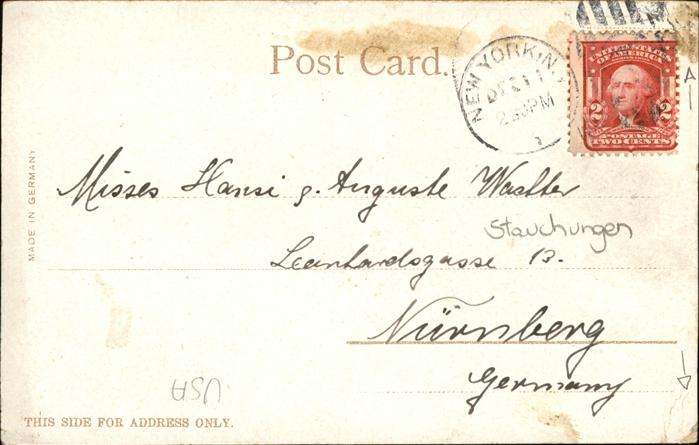 Post Card.
NEW YORK, N.Y.
DEC 11
2 30 PM
1
UNITED STATES
OF AMERICA
2 2
POSTAGE
TWO CENTS
A
MADE IN GERMANY
Misses Hansi & Auguste
Stauchungen
Leonhardsgasse 13.
Nürnberg
Germany
USA
THIS SIDE FOR ADDRESS ONLY.